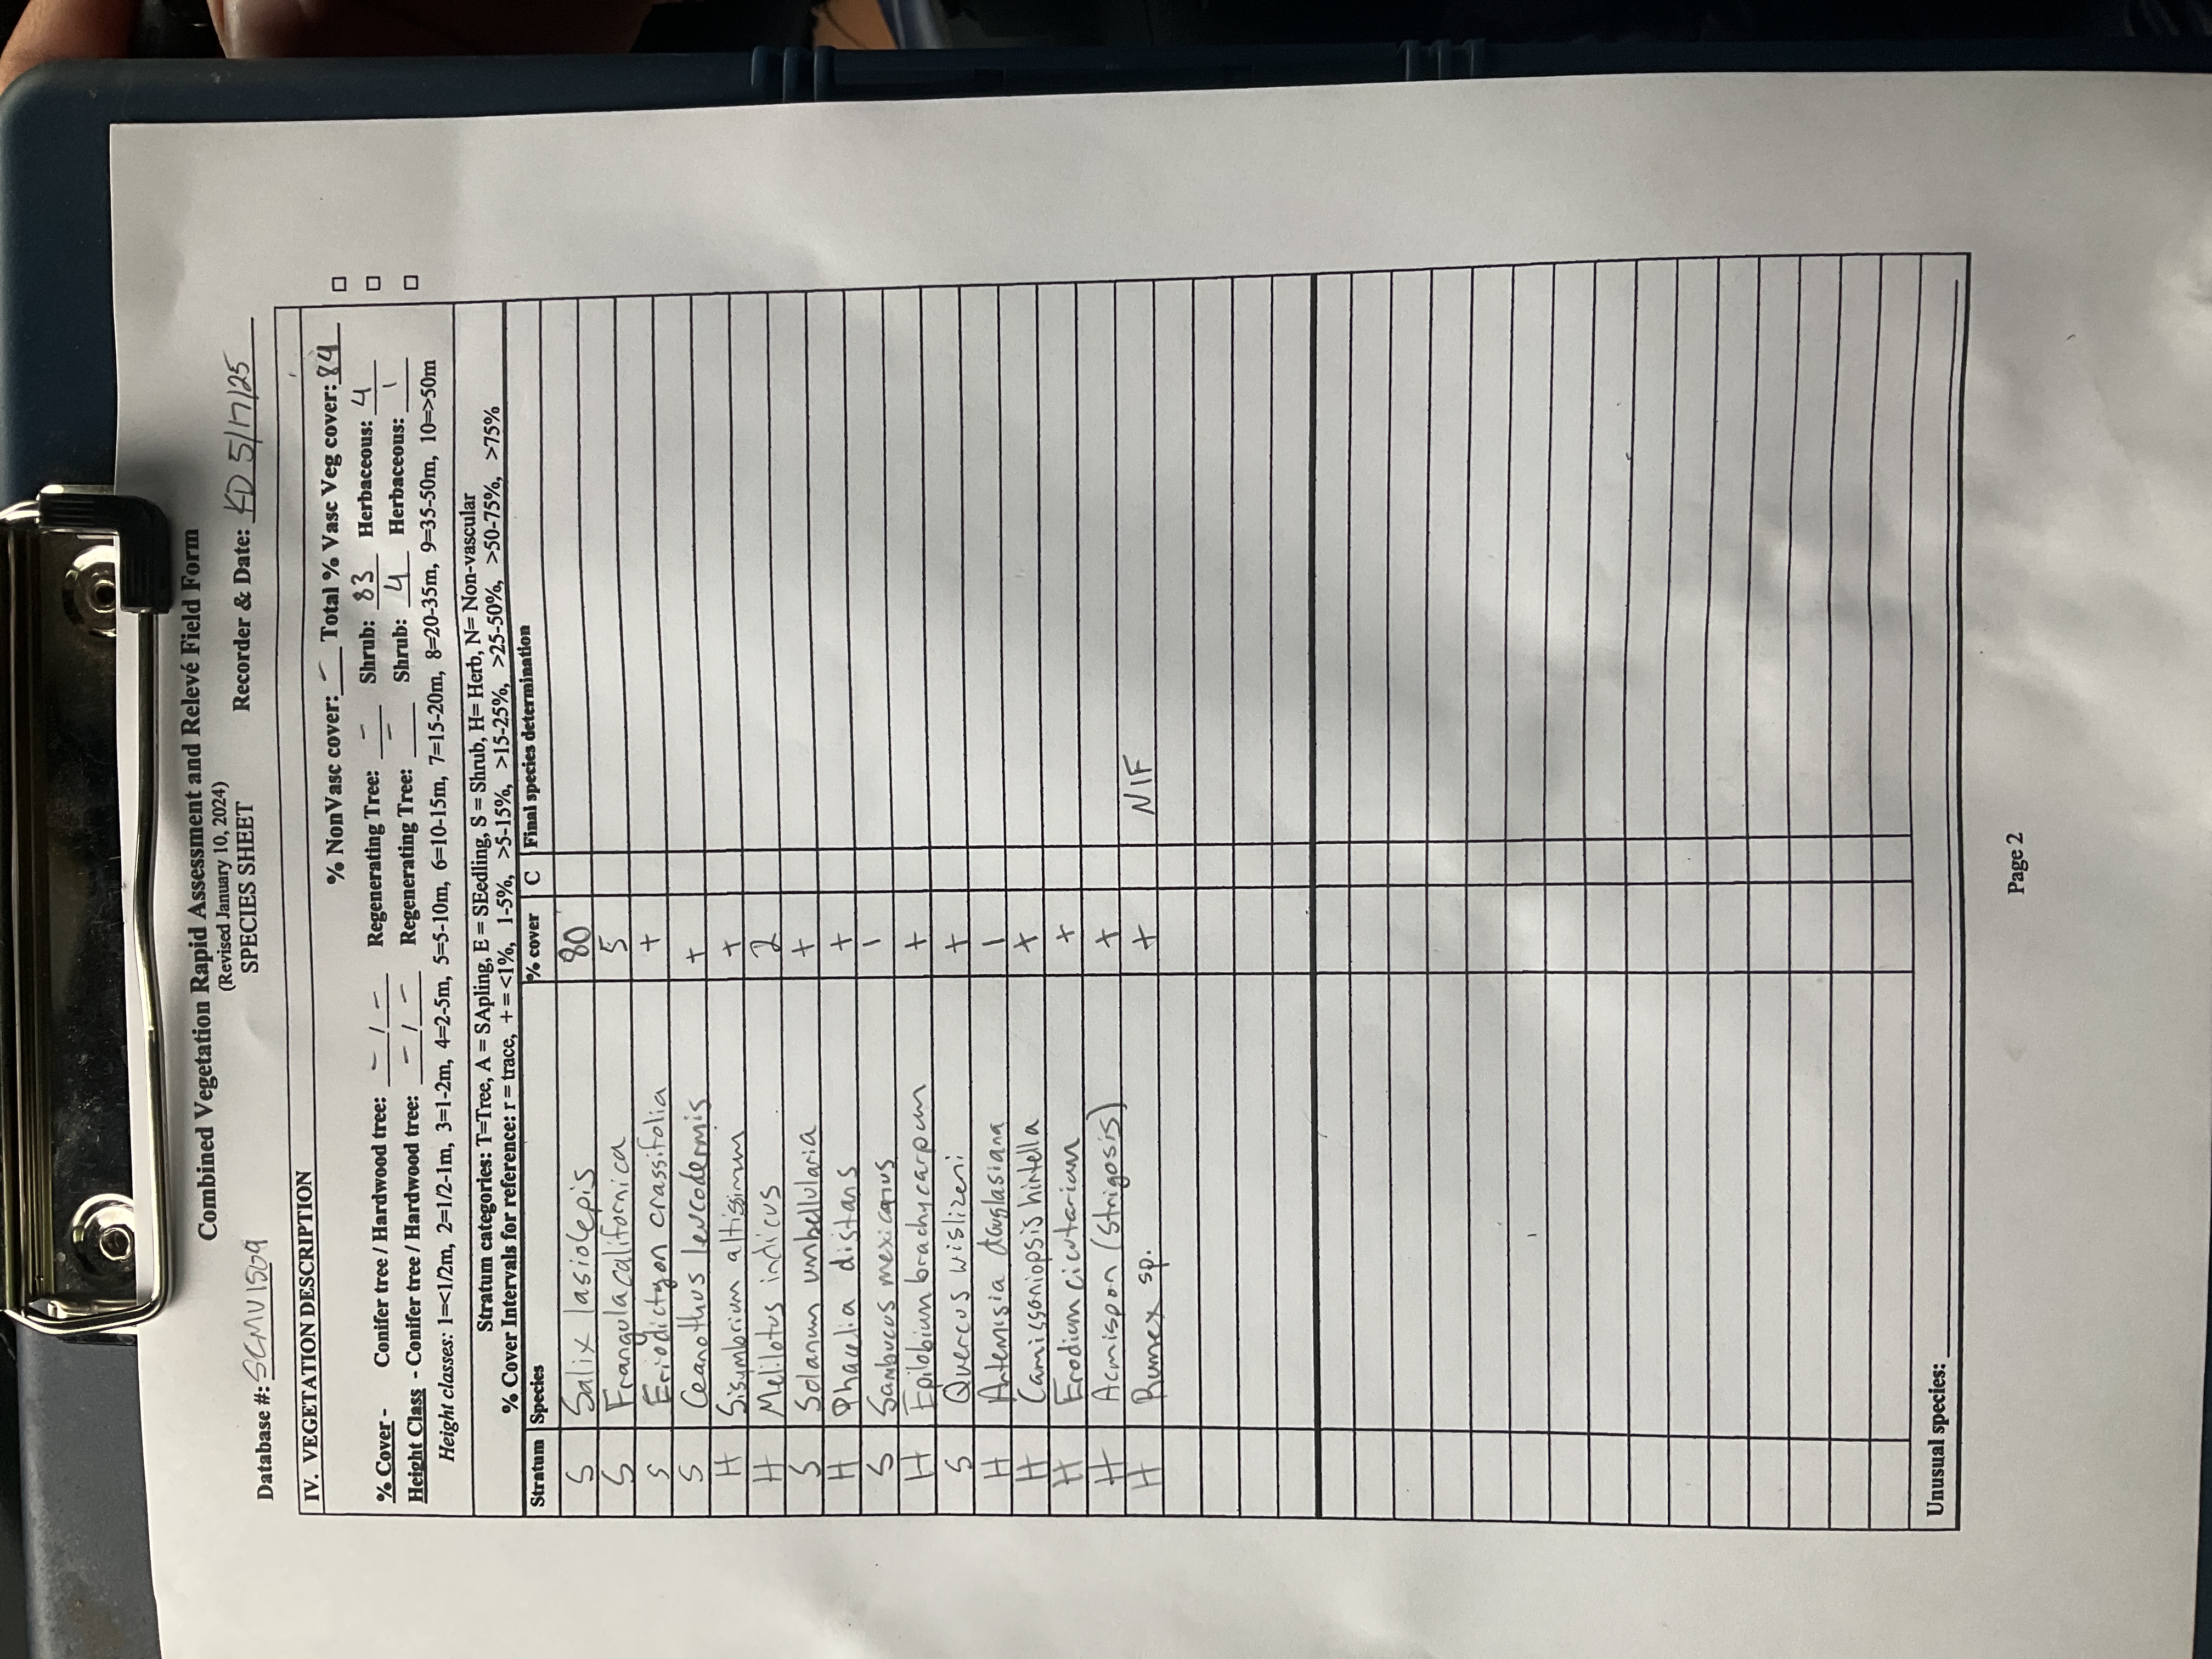 Combined Vegetation Rapid Assessment and Relevé Field Form
(Revised January 10, 2024)
SPECIES SHEET
Database #: SCMV1509 Recorder & Date: KD 5/17/25
IV. VEGETATION DESCRIPTION
% NonVasc cover: - Total % Vasc Veg cover: 84 □
% Cover - Conifer tree / Hardwood tree: - / - Regenerating Tree: - Shrub: 83 Herbaceous: 4 □
Height Class - Conifer tree / Hardwood tree: - / - Regenerating Tree: - Shrub: 4 Herbaceous: 1 □
Height classes: 1=<1/2m, 2=1/2-1m, 3=1-2m, 4=2-5m, 5=5-10m, 6=10-15m, 7=15-20m, 8=20-35m, 9=35-50m, 10=>50m
Stratum categories: T=Tree, A = SApling, E = SEedling, S = Shrub, H= Herb, N= Non-vascular
% Cover Intervals for reference: r = trace, + = <1%, 1-5%, >5-15%, >15-25%, >25-50%, >50-75%, >75%
Stratum Species % cover C Final species determination
S Salix lasiolepis 80
S Frangula californica 5
S Eriodictyon crassifolia +
S Ceanothus leucodermis +
H Sisymbrium altissimum +
H Melilotus indicus 2
S Solanum umbellularia +
H Phacelia distans +
S Sambucus mexicanus 1
H Epilobium brachycarpum +
S Quercus wislizeni +
H Artemisia douglasiana 1
H Camissoniopsis hintella +
H Erodium cicutarium +
H Acmispon (strigosis) +
H Rumex sp. + NIF
Unusual species:
Page 2